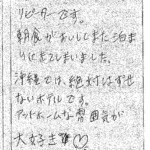 リピーターです。
朝食がおいしくまた泊ま
りにきてしまいました。
沖縄では、絶対はずせ
ないホテルです。
アットホームな雰囲気が
大好きです♡